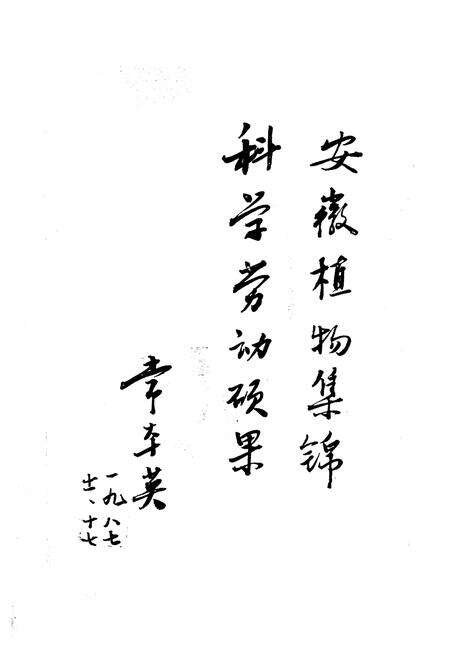 安徽植物集锦
科学劳动硕果
英
一九八七
十一、十七